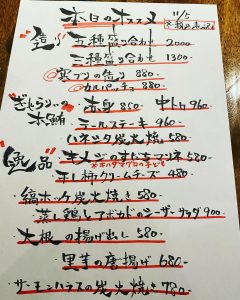 本日のオススメ 11/5
"造り" 五種盛り合わせ 2000
三種盛り合わせ 1300
寒ブリの造り 880-
カルパッチョ 880-
本鮪 赤身 850 中トロ 960
テールステーキ 960-
ハネシタ炭火焼 580-
"逸品"
干し柿クリームチーズ 480
・縞ホッケ炭火焼き 580-
・蒸し鶏とアボカドのシーザーサラダ 900
・大根の揚げ出し 580-
・里芋の唐揚げ 680-
・サーモンハラスの炭火焼き 780-